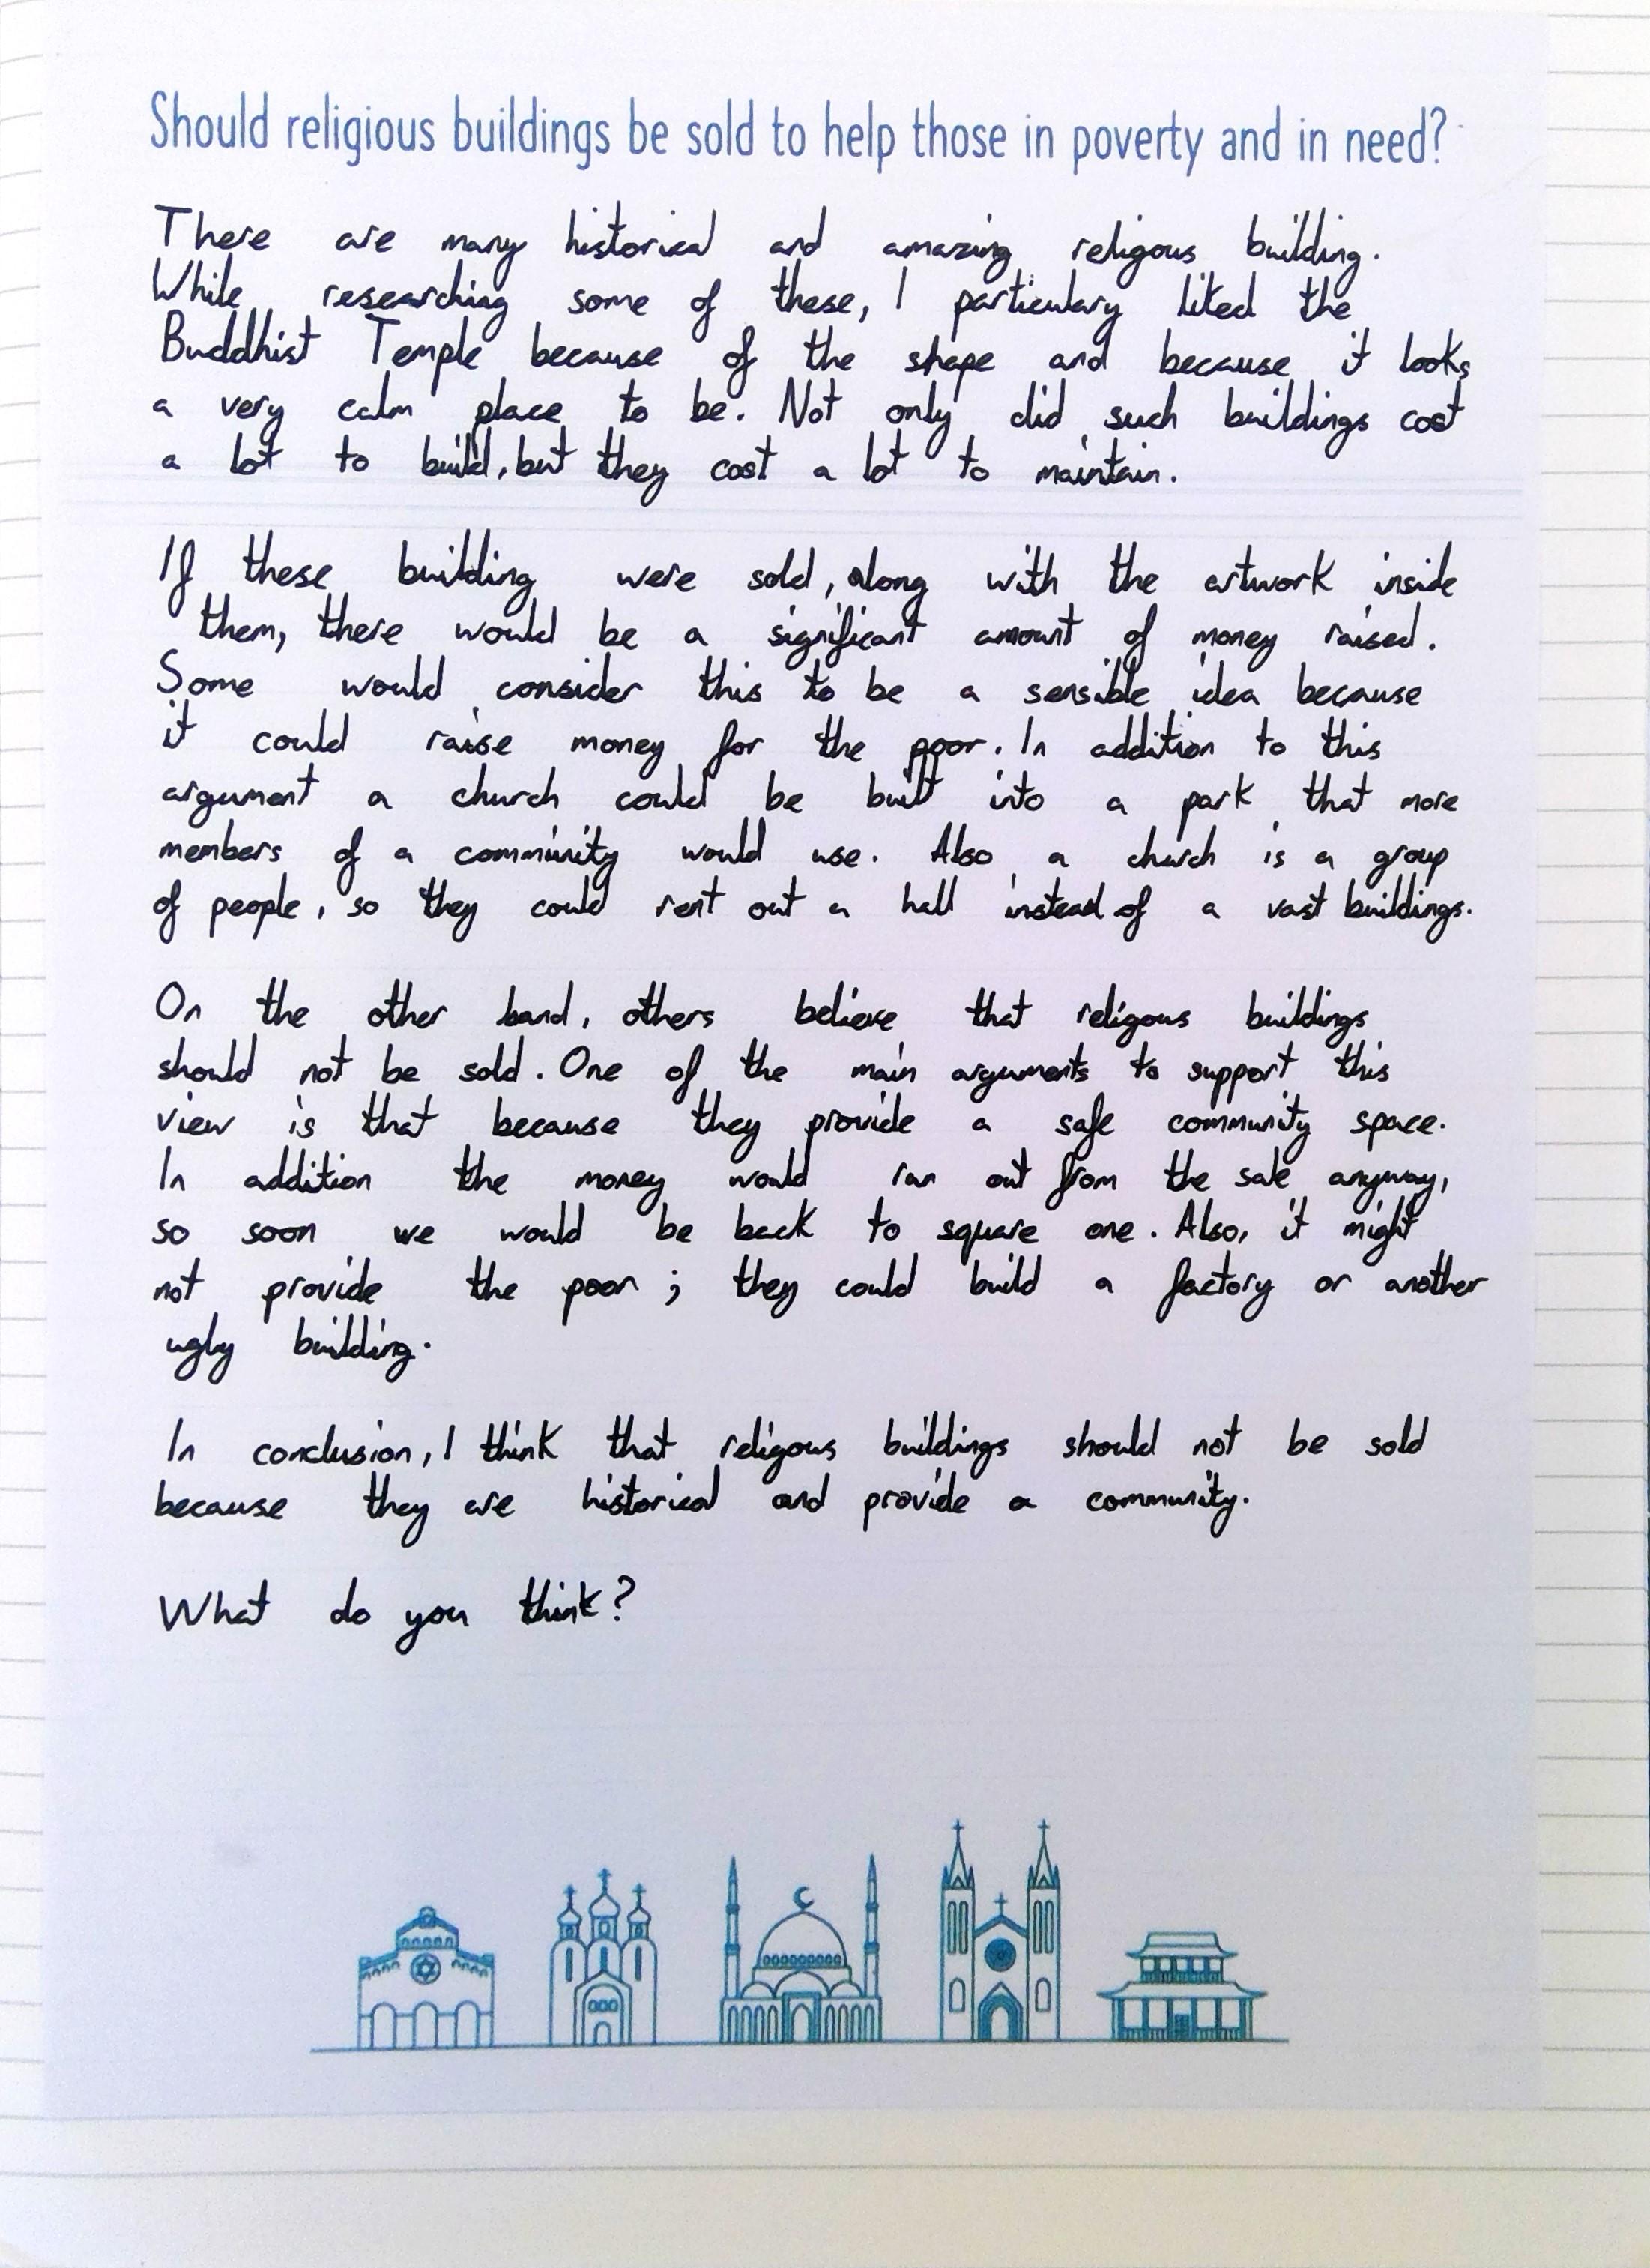 Should religious buildings be sold to help those in poverty and in need?
There are many historical and amazing religous building.
While researching some of these, I particulary liked the
Buddhist Temple because of the shape and because it looks
a very calm place to be. Not only did such buildings cost
a lot to build, but they cost a lot to maintain.
If these building were sold, along with the artwork inside
them, there would be a significant amount of money raised.
Some would consider this to be a sensible idea because
it could raise money for the poor. In addition to this
argument a church could be built into a park that more
members of a community would use. Also a church is a group
of people, so they could rent out a hall instead of a vast buildings.
On the other hand, others believe that religous buildings
should not be sold. One of the main arguments to support this
view is that because they provide a safe community space.
In addition the money would run out from the sale anyway,
so soon we would be back to square one. Also, it might
not provide the poor; they could build a factory or another
ugly building.
In conclusion, I think that religous buildings should not be sold
because they are historical and provide a community.
What do you think?